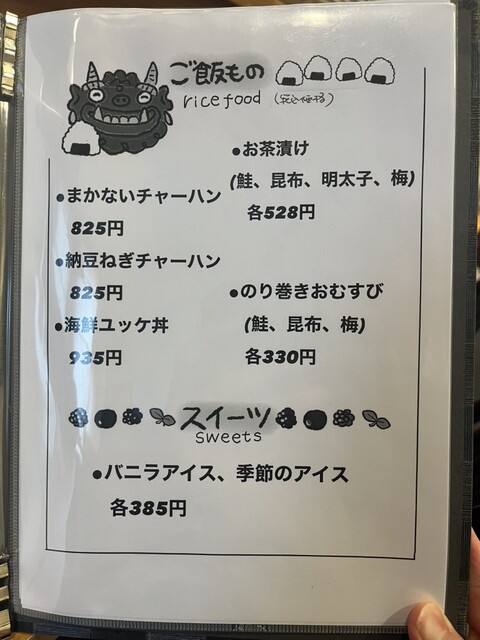 ご飯もの
rice food
●お茶漬け
(鮭、昆布、明太子、梅)
各528円
●まかないチャーハン
825円
●納豆ねぎチャーハン
825円
●海鮮ユッケ丼
935円
●のり巻きおむすび
(鮭、昆布、梅)
各330円
スイーツ
sweets
●バニラアイス、季節のアイス
各385円